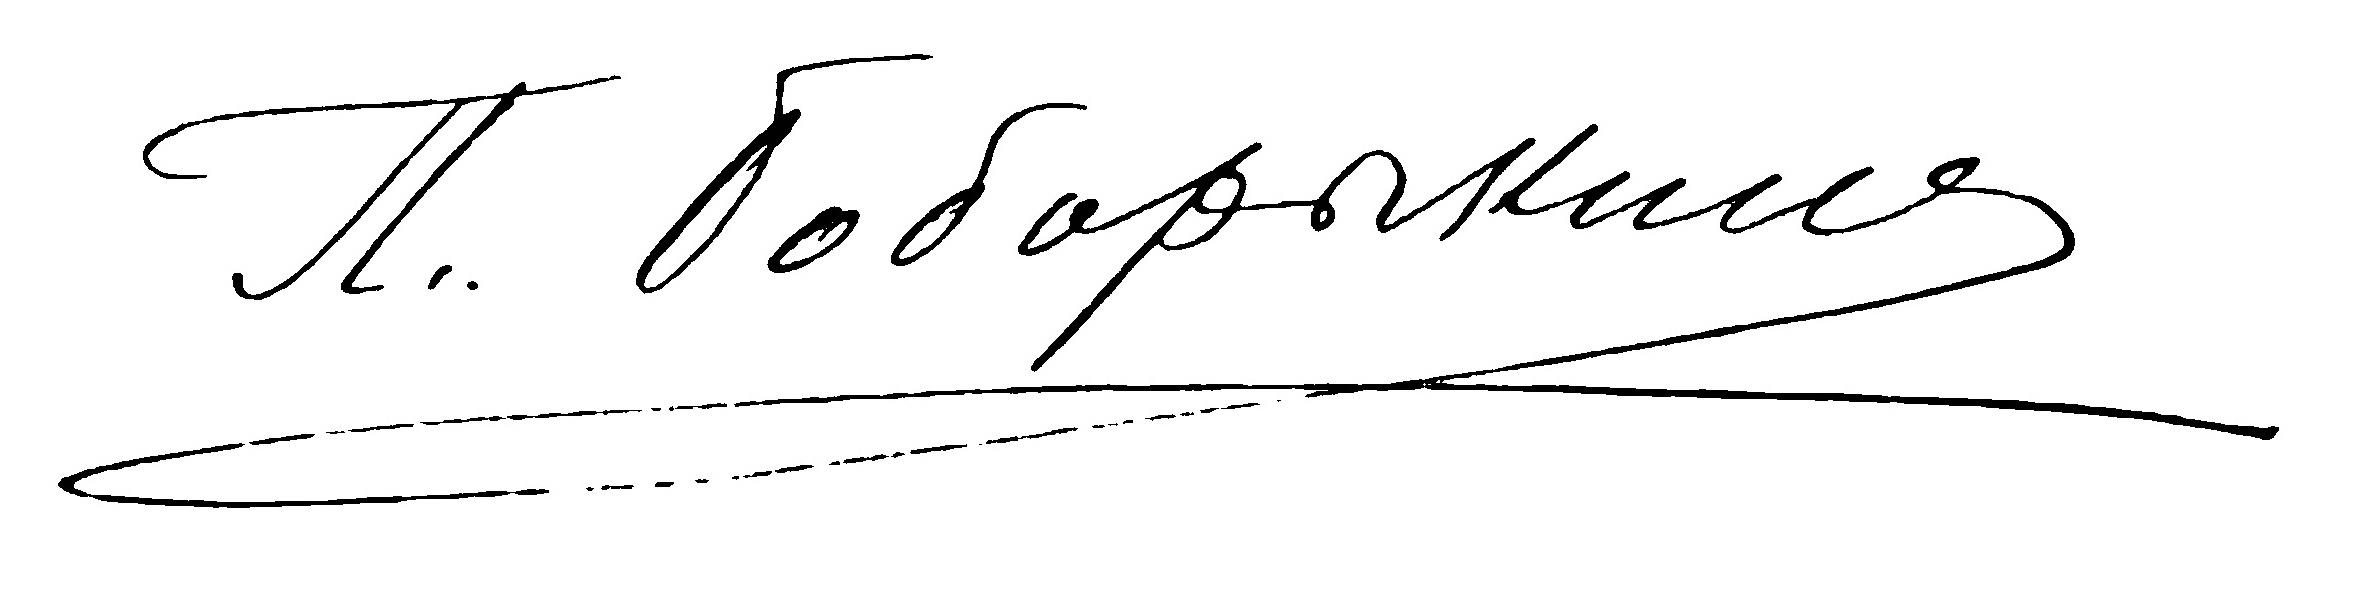 П. Боборыкинъ